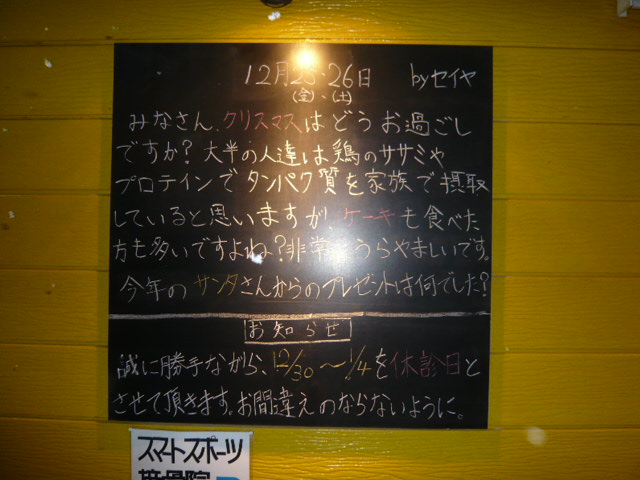 12月25・26日 byセイヤ
(金)、(土)
みなさん、クリスマスはどうお過ごし
ですか?大半の人達は鶏のササミや
プロテインでタンパク質を家族で摂取
していると思いますが、ケーキも食べた
方も多いですよね?非常にうらやましいです。
今年のサンタさんからのプレゼントは何でした?
お知らせ
誠に勝手ながら、12/30〜1/4を休診日と
させて頂きます。お間違えのならないように。
スマートスポーツ
整骨院